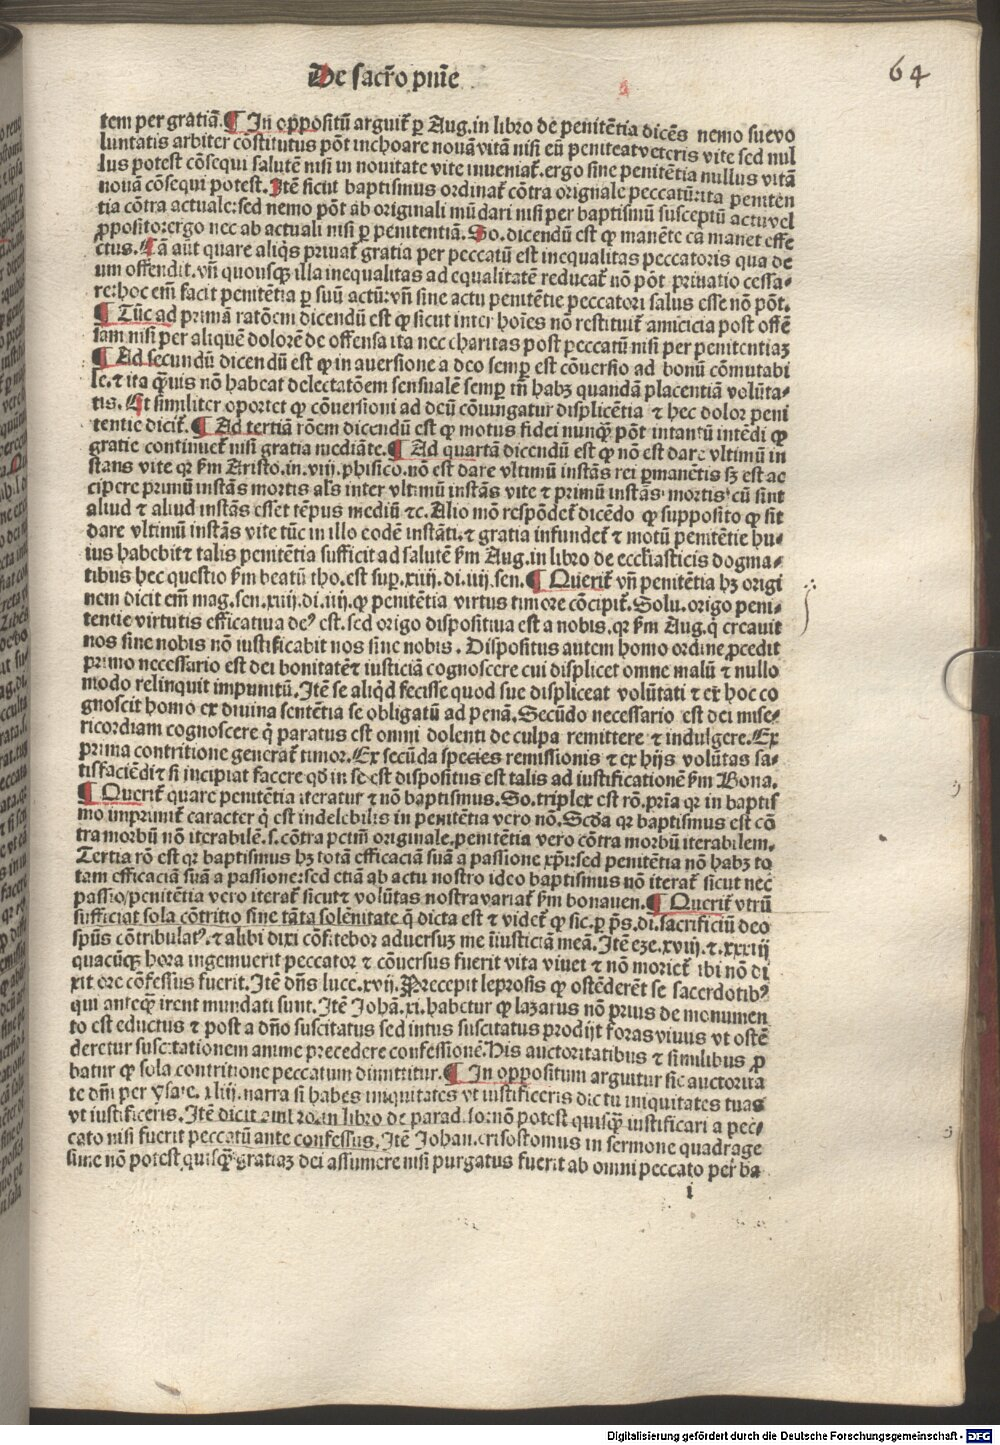 De sacr̃o pn̄ie
64
tem per gratiã. ¶ In oppositũ arguit̃ ꝑ Aug. in libro de penitẽtia dicẽs nemo sue vo
luntatis arbiter cõstitutus põt inchoare nouã vitã nisi eũ peniteat veteris vite sed nul
lus potest cõsequi salutẽ nisi in nouitate vite inueniat̃. ergo sine penitẽtia nullus vitã
nouã cõsequi potest. Itẽ sicut baptismus ordinat̃ cõtra orignale peccatũ: ita peniten
tia cõtra actuale: sed nemo põt ab originali mũdari nisi per baptismũ susceptũ actu vel
ꝓposito: ergo nec ab actuali nisi ꝑ penitentiã. So. dicendũ est ꝙ manẽte cã manet effe
ctus. Cã aũt quare aliq̃s priuat̃ gratia per peccatũ est inequalitas peccatoris qua de
um offendit. vñ quousqꝫ illa inequalitas ad equalitatẽ reducat̃ nõ põt priuatio cessa-
re: hoc em̃ facit penitẽtia ꝑ suũ actũ: vñ sine actu penitẽtie peccatori salus esse nõ põt.
¶ Tũc ad primã ratõem dicendũ est ꝙ sicut inter hoĩes nõ restituit̃ amicicia post offẽ
sam nisi per aliquẽ dolorẽ de offensa ita nec charitas post peccatũ nisi per penitentiaꝫ
¶ Ad secundũ dicendũ est ꝙ in auersione a deo semꝑ est cõuersio ad bonũ cõmutabi
le. ⁊ ita q̃uis nõ habeat delectatõem sensualẽ semꝑ tñ habꝫ quandã placentiã volũta-
tis. Et similiter oportet ꝙ cõuersioni ad deũ cõiungatur displicẽtia ⁊ hec dolor peni
tentie dicit̃. ¶ Ad tertiã rõem dicendũ est ꝙ motus fidei nunq̃ põt intantũ intẽdi ꝙ
gratie continuet̃ nisi gratia mediãte. ¶ Ad quartã dicendũ est ꝙ nõ est dare vltimũ in
stans vite qr̃ fm̃ Aristo. in. viij. phisico. nõ est dare vltimũ instãs rei ꝑmanẽtis sꝫ est ac
cipere primũ instãs mortis als̃ inter vltimũ instãs vite ⁊ primũ instãs mortis cũ sint
aliud ⁊ aliud instãs esset tẽpus mediũ ⁊c. Alio mõ respõdet̃ dicẽdo ꝙ supposito ꝙ sit
dare vltimũ instãs vite tũc in illo eodẽ instãti. ⁊ gratia infundet̃ ⁊ motũ penitẽtie hu-
ius habebit ⁊ talis penitẽtia sufficit ad salutẽ fm̃ Aug. in libro de ecclesiasticis dogma-
tibus hec questio fm̃ beatũ tho. est sup. xiiij. di. iiij. sen. ¶ Querit̃ vñ penitẽtia hꝫ origi
nem dicit em̃ mag. sen. xiiij. di. iiij. ꝙ penitẽtia virtus timore cõcipit̃. Solu. origo peni-
tentie virtutis efficatiua deꝰ est. sed origo dispositiua est a nobis. qr̃ fm̃ Aug. q̇ creauit
nos sine nobis nõ iustificabit nos sine nobis. Dispositus autem homo ordine ꝓcedit
primo necessario est dei bonitatẽ ⁊ iusticiã cognoscere cui displicet omne malũ ⁊ nullo
modo relinquit impunitũ. Itẽ se aliq̇d fecisse quod sue displiceat volũtati ⁊ ex hoc co
gnoscit homo ex diuina sentẽtia se obligatũ ad penã. Secũdo necessario est dei mise-
ricordiam cognoscere q̇ paratus est omni dolenti de culpa remittere ⁊ indulgere. Ex
prima contritione generat̃ timor. Ex secũda species remissionis ⁊ ex hijs volũtas sa-
tisfaciẽdi ⁊ si incipiat facere qd̃ in se est dispositus est talis ad iustificationẽ fm̃ Bona.
¶ Querit̃ quare penitẽtia iteratur ⁊ nõ baptismus. So. triplex est rõ. pria qr̃ in baptis
mo imprimit̃ caracter q̇ est indelebilis in penitẽtia vero nõ. Scd̃a qr̃ baptismus est cõ
tra morbũ nõ iterabilẽ. s. cõtra pctm̃ originale. penitẽtia vero cõtra morbũ iterabilem.
Tertia rõ est qr̃ baptismus hꝫ totã efficaciã suã a passione xp̃i: sed penitẽtia nõ habꝫ to
tam efficaciã suã a passione: sed etiã ab actu nostro ideo baptismus nõ iterat̃ sicut nec
passio/ penitẽtia vero iterat̃ sicut ⁊ volũtas nostra variat̃ fm̃ bonauen. ¶ Querit̃ vtrũ
sufficiat sola cõtritio sine tãta solẽnitate q̃ dicta est ⁊ videt̃ ꝙ sic. ꝑ ps̃. di. sacrificiũ deo
spũs cõtribulatꝰ. ⁊ alibi dixi cõfitebor aduersuꝫ me iniusticiã meã. Itẽ eze. xviij. ⁊. xxxiij
quacũqꝫ hora ingemuerit peccator ⁊ cõuersus fuerit vita viuet ⁊ nõ moriet̃ ibi nõ di
xit ore cõfessus fuerit. Itẽ dñs luce. xvij. Precepit leprosis ꝙ ostẽderẽt se sacerdotibꝰ
qui anteq̃ irent mundati sunt. Itẽ Johã. xi. habetur ꝙ lazarus nõ prius de monumen
to est eductus ⁊ post a dño suscitatus sed intus suscitatus prodijt foras viuus vt ostẽ
deretur suscitationem anime precedere confessionẽ. His auctoritatibus ⁊ similibus ꝓ
batur ꝙ sola contritione peccatum dimittitur. ¶ In oppositum arguitur sic auctorita
te dñi per ysaie. xliij. narra si habes iniquitates vt iustificeris dic tu iniquitates tuas
vt iustificeris. Itẽ dicit in libro de parad. nõ potest quisq̃ iustificari a pec-
cato nisi fuerit peccatũ ante confessus. Itẽ Johan. crisostomus in sermone quadrage
sime nõ potest quisq̃ gratiaꝫ dei assumere nisi purgatus fuerit ab omni peccato per ba
i
Digitalisierung gefördert durch die Deutsche Forschungsgemeinschaft - DFG